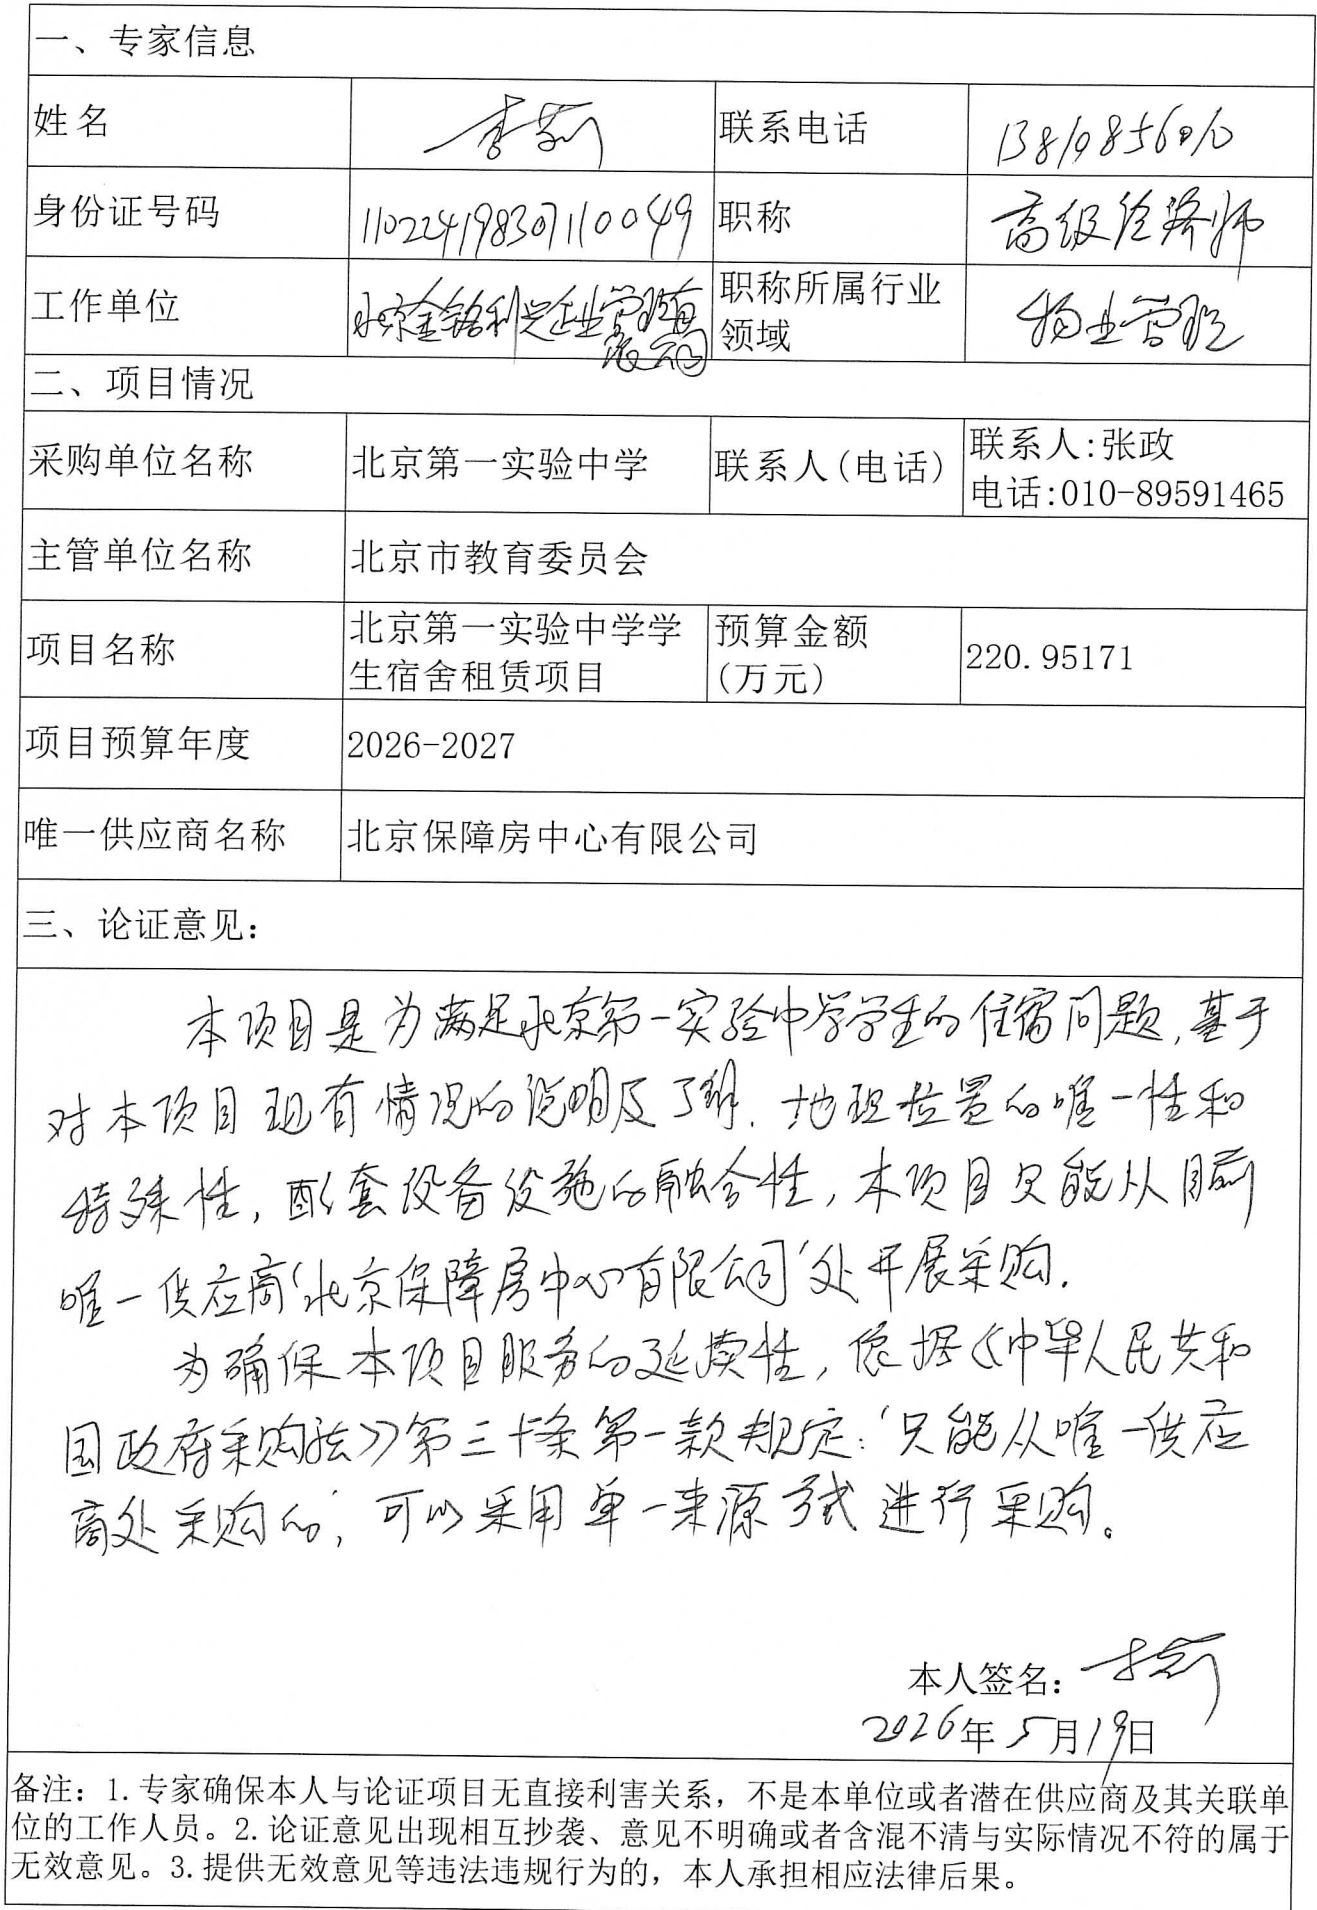 一、专家信息
姓名 李莉 联系电话
身份证号码 110224198307110049 职称 高级经济师
工作单位 北京金铭利兴企业管理有限公司 职称所属行业领域 物业管理
二、项目情况
采购单位名称 北京第一实验中学 联系人(电话) 联系人:张政
电话:010-89591465
主管单位名称 北京市教育委员会
项目名称 北京第一实验中学学生宿舍租赁项目 预算金额(万元) 220.95171
项目预算年度 2026-2027
唯一供应商名称 北京保障房中心有限公司
三、论证意见:
本项目是为满足北京第一实验中学学生的住宿问题,基于
对本项目现有情况的说明及了解.地理位置的唯一性和
特殊性,配套设备设施的融合性,本项目只能从目前
唯一供应商'北京保障房中心有限公司'处开展采购.
为确保本项目服务的延续性,依据《中华人民共和
国政府采购法》第三十条第一款规定:'只能从唯一供应
商处采购的',可以采用单一来源方式进行采购。
本人签名:李莉
2026年5月19日
备注:1.专家确保本人与论证项目无直接利害关系,不是本单位或者潜在供应商及其关联单
位的工作人员。2.论证意见出现相互抄袭、意见不明确或者含混不清与实际情况不符的属于
无效意见。3.提供无效意见等违法违规行为的,本人承担相应法律后果。